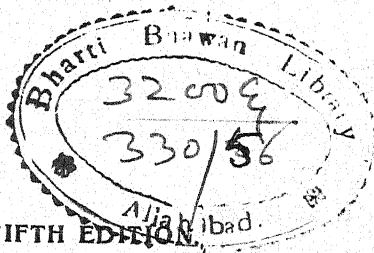 Bharti Bhawan Library
3200
330/56
Allahabad.
FIFTH EDITION.